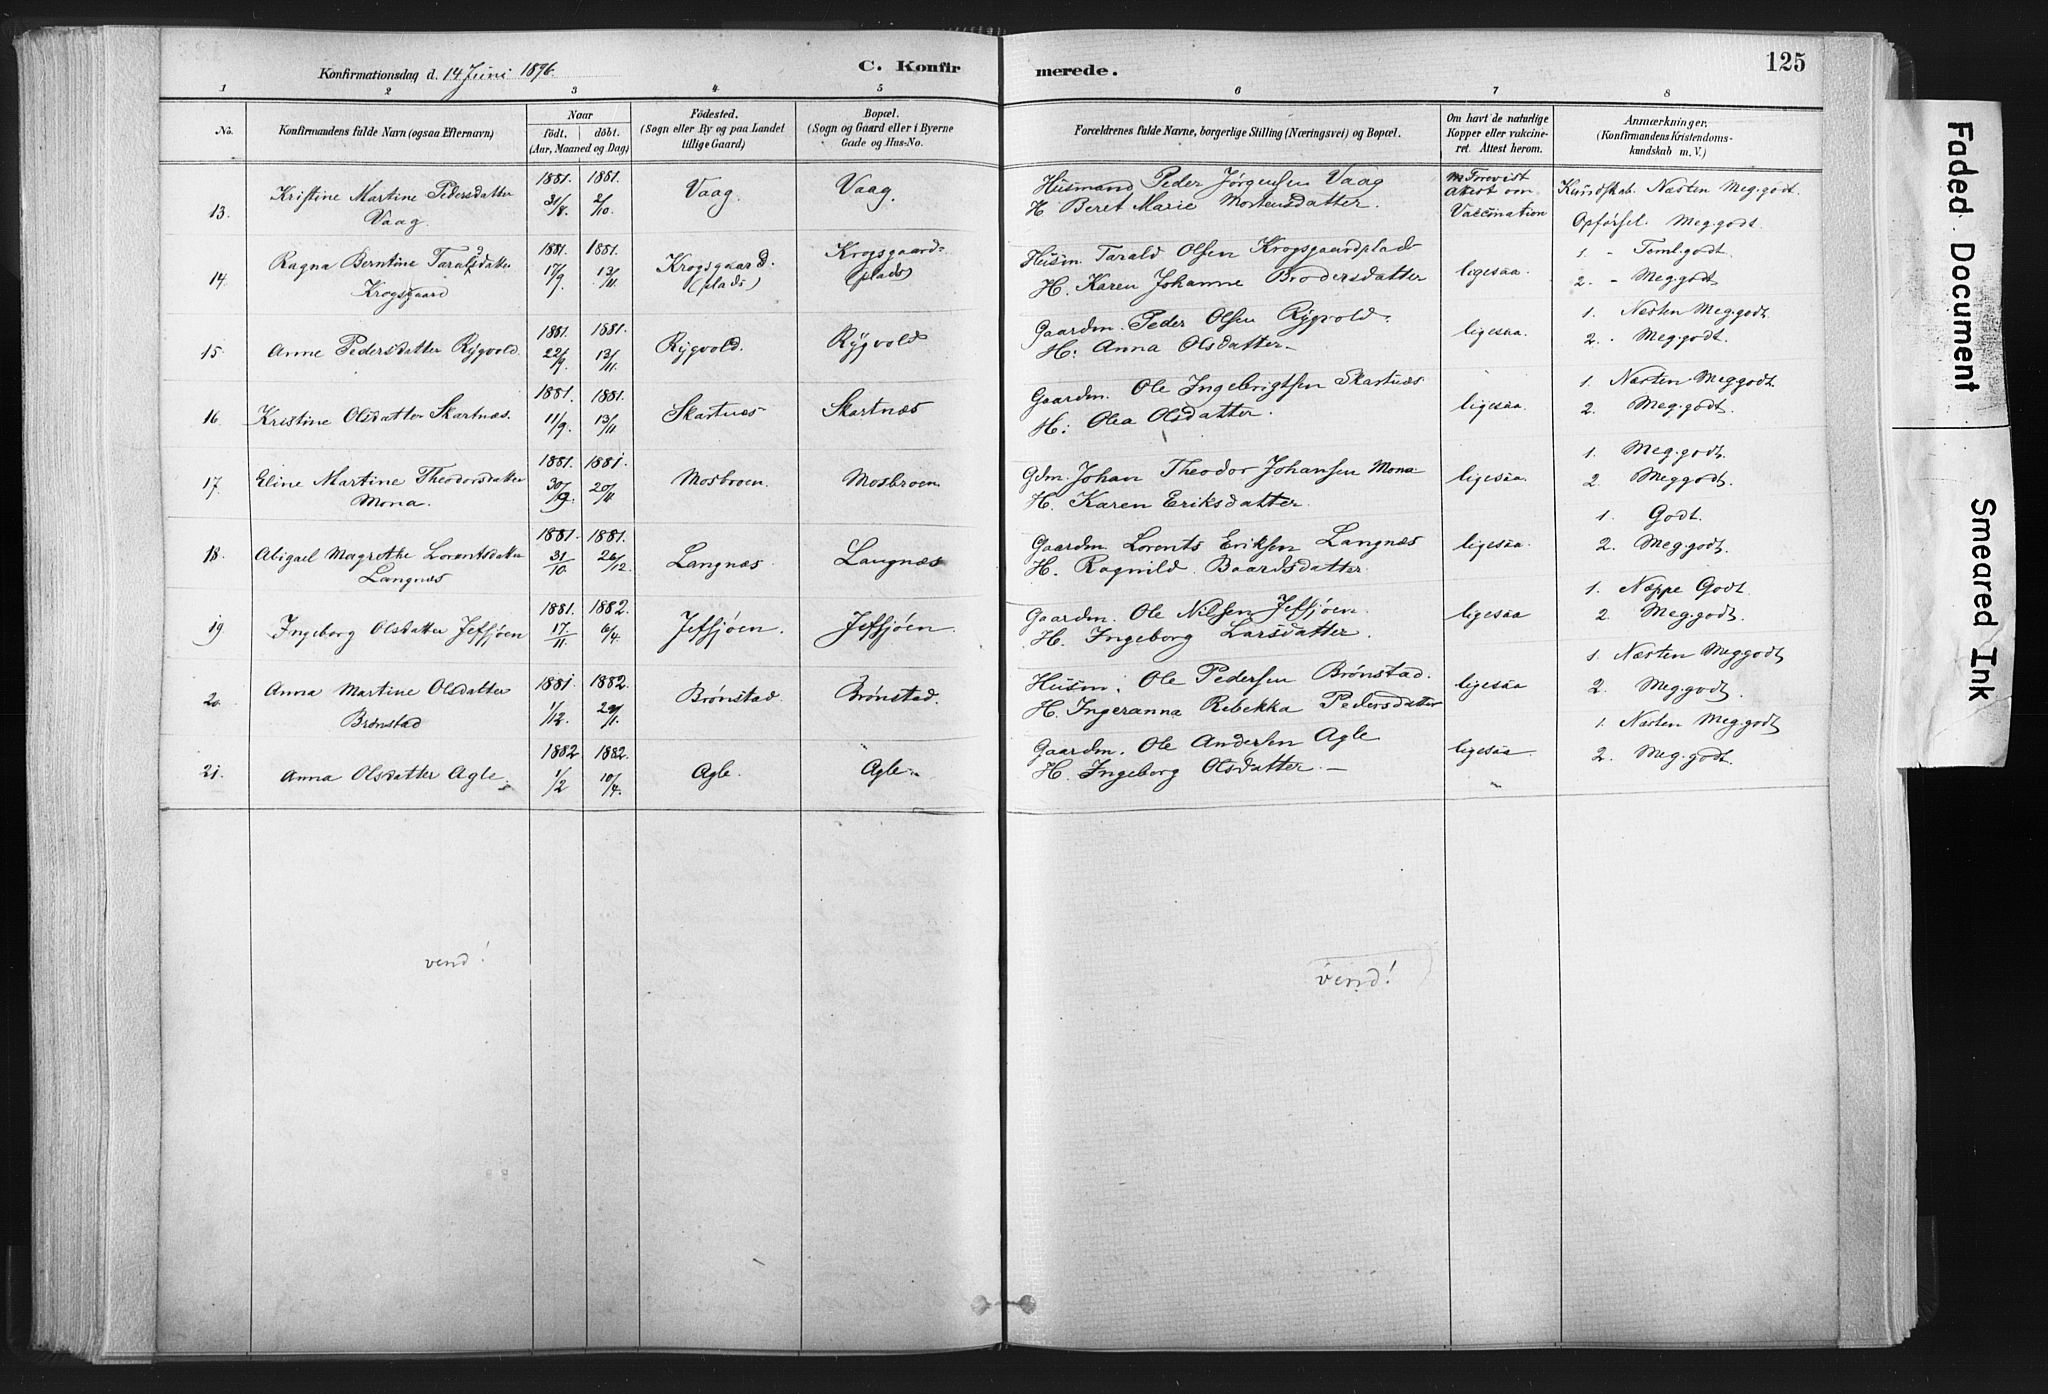 Konfirmationsdag d. 14 Juni 1896.
C. Konfirmerede.
125
1 2 3 4 5 6 7 8
No.
Konfirmandens fulde Navn (ogsaa Efternavn)
Naar
födt. döbt.
(Aar, Maaned og Dag)
Födested.
(Sogn eller By og paa Landet
tillige Gaard)
Bopæl.
(Sogn og Gaard eller i Byerne
Gade og Hus-No.
Forældrenes fulde Navne, borgerlige Stilling (Næringsvei) og Bopæl.
Om havt de naturlige
Kopper eller vakcine-
ret. Attest herom.
Anmærkninger.
(Konfirmandens Kristendoms-
kundskab m. V.)
13. Kristine Martine Pedersdatter
Vaag
1881. 31/8 1881. 2/10. Vaag. Vaag.
Husmand Peder Jørgensen Vaag
H Beret Marie Mortensdatter.
Attest om
Vaccination
Kundskab. Næsten Meg. godt.
Opførsel. Meg. godt.
14. Ragna Berntine Taraldsdatter
Krogsgaard
1881. 17/9 1881. 13/11 Krogsgaard.
(plads)
Krogsgaard-
(plads)
Husm. Tarald Olsen Krogsgaardplads
H. Karen Johanne Brodersdatter
ligesaa.
1. - Teml. godt.
2. - Meg. godt
15. Anne Pedersdatter Rygvold.
1881. 22/9 1881. 13/11. Rygvold. Rygvold
Gaardm. Peder Olsen Rygvold.
H: Anna Olsdatter.-
ligesaa.
1. Næsten Meg. godt.
2. - Meg. godt.
16. Kristine Olsdatter Skartnæs.
1881. 11/9. 1881. 13/11 Skartnæs Skartnæs
Gaardm. Ole Ingebrigtsen Skartnæs
H: Olea Olsdatter.
ligesaa.
1. Næsten Meg godt.
2. Meg. godt.
17. Eline Martine Theodorsdatter
Mona.
1881. 30/9. 1881. 20/11 Mosbroen. Mosbroen
Gdm. Johan Theodor Johansen Mona
H. Karen Eriksdatter.
ligesaa.
1. Meg. godt.
2. Meg godt.
18. Abigael Magrethe Lorentsdatter
Langnæs
1881. 31/10. 1881. 26/12. Langnæs. Langnæs
Gaardm. Lorents Eriksen Langnæs
H. Ragnild. Baardsdatter.
ligesaa.
1. Godt.
2. Meg. godt.
19 Ingeborg Olsdatter Jefsjøen
1881. 17/11. 1882. 6/4. Jefsjøen. Jefsjøen.
Gaardm. Ole Nilsen Jefsjøen.
H. Ingeborg Larsdatter.
ligesaa
1. Næppe Godt
2. Meg. godt.
20. Anna Martine Olsdatter
Brønstad
1881. 1/12. 1882. Brønstad Brønstad.
Husm. Ole Pedersen Brønstad.
H. Ingeranna Rebekka Pedersdatter
ligesaa
1. Næsten Meg godt
2. Meg. godt.
21. Anna Olsdatter Agle.
1882 1/2 1882. 10/4. Agle. Agle.
Gaardm. Ole Andersen Agle
H. Ingeborg Olsdatter. -
ligesaa
1. Næsten Meg. godt
2. Meg. godt.
vend!
vend!
Faded Document
Smeared Ink